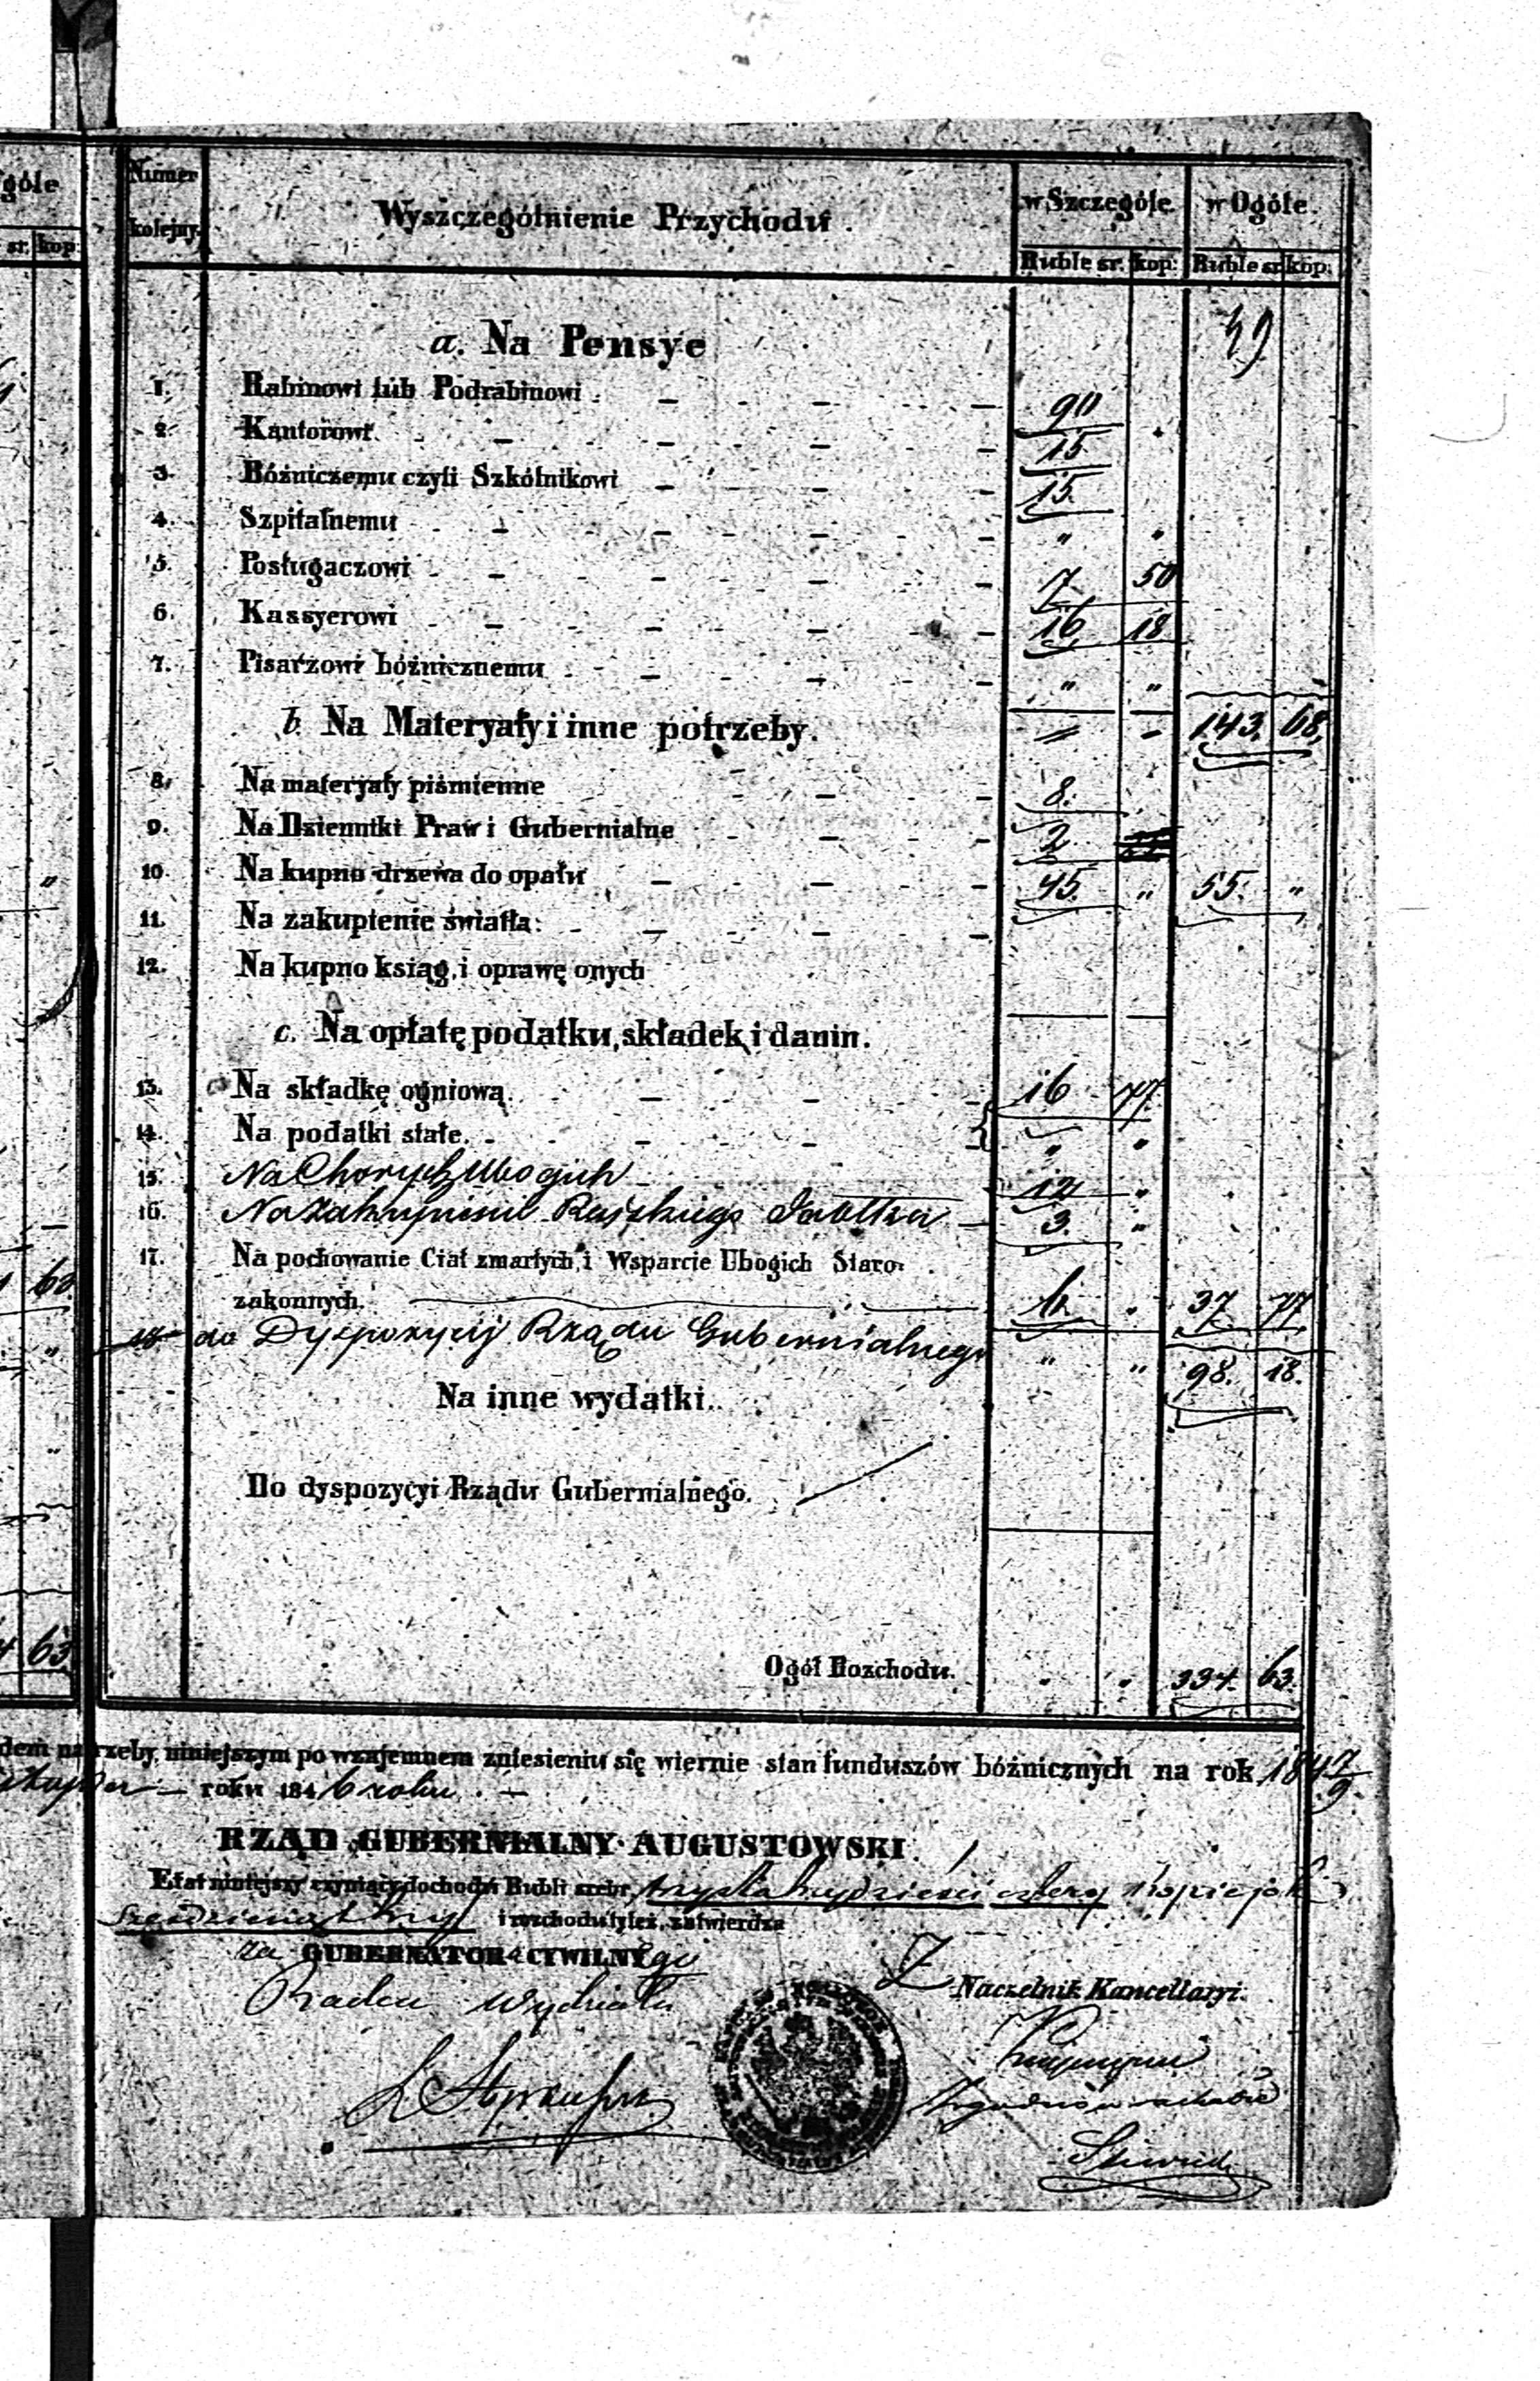 góle
sr. kop:
Numer kolejny. Wyszczególnienie Przychodu. w Szczególe. w Ogóle.
Ruble sr. kop: Ruble sr. kop:
a. Na Pensye 49
1. Rabinowi lub Podrabinowi 90
2. Kantorowi 15
3. Bóźniczemu czyli Szkólnikowi 15.
4. Szpitalnemu " "
5. Posługaczowi 7 50
6. Kassyerowi 16 18
7. Pisarzowi bóźnicznemu " "
b. Na Materyały i inne potrzeby. 143. 68.
8. Na materyały piśmienne 8.
9. Na Dzienniki Praw i Gubernialne 2
10. Na kupno drzewa do opału 45. " 55. "
11. Na zakupienie światła:
12. Na kupno ksiąg, i oprawę onych
c. Na opłatę podatku, składek, i danin.
13. Na składkę ogniową. 16 77.
14. Na podatki stałe. " "
15. Na Chorych Ubogich 12 "
16. Na Zakupienie Rajskiego Jabłka 3. "
17. Na pochowanie Ciał zmarłych, i Wsparcie Ubogich Staro-
zakonnych. " 37 77
18 do Dyspozycij Rządu Gubernialnego " " 98. 18.
Na inne wydatki.
Do dyspozycyi Rządu Gubernialnego.
Ogół Rozchodu. " " 334. 63.
63.
63
niniejszym po wzajemnem zniesieniu się wiernie stan funduszów bóźnicznych na rok 1847/9.
roku 1846 roku.
RZĄD GUBERNIALNY AUGUSTOWSKI.
Etat niniejszy czyniący dochodu Rubli srebr. trzysta trzydzieści cztery kopiejek
sześdziesiąt trzy i rozchodu tyleż, zatwierdza
za GUBERNATORA CYWILNEgo
Radca Wydziału
Z Naczelnik Kancellaryi.